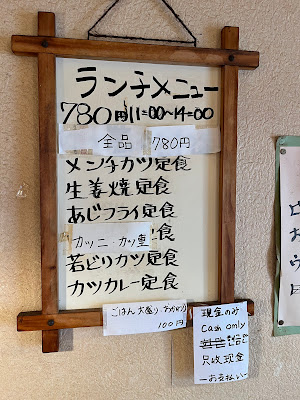 ランチメニュー
780円 11:00~14:00
全品 780円
メンチカツ定食
生姜焼定食
あじフライ定食
カツ二・カツ重
食
若どりカツ定食
カツカレー定食
ごはん大盛り・おかわり
100円
現金のみ
Cash only
只收現金
ーお支払いー